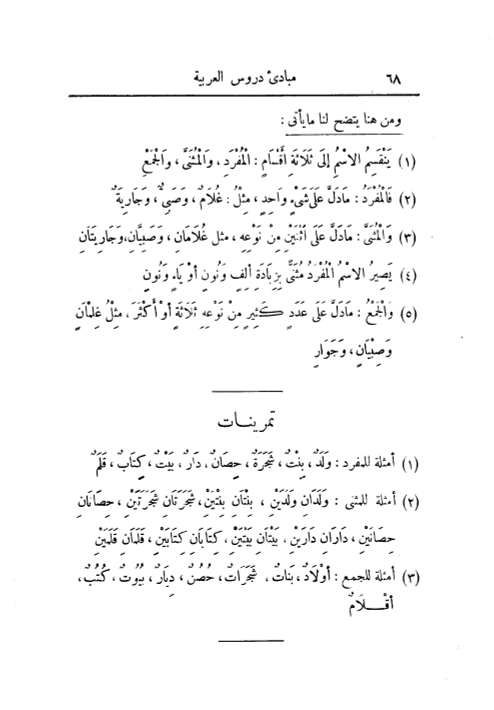 ٦٨ مبادئ دروس العربية
ومن هنا يتضح لنا مايأتى :
(١) يَنْقَسِمُ الاسْمُ إلَى ثَلَاثَةِ أَقْسَامٍ : الْمُفْرَدِ ، وَالْمُثَنَّى ، وَالْجَمْعِ
(٢) فَالْمُفْرَدُ : مَادَلَّ عَلَى شَىْءٍ وَاحِدٍ ، مِثْلُ : غُلَامٌ ، وَصَبِىٌّ ، وَجَارِيَةٌ
(٣) وَالْمُثَنَّى : مَادَلَّ عَلَى اثْنَيْنِ مِنْ نَوْعِهِ ، مثل غُلَامَانِ ، وَصَبِيَّانِ ، وَجَارِيَتَانِ
(٤) يَصِيرُ الاسْمُ الْمُفْرَدُ مُثَنًّى بِزِيَادَةِ أَلِفٍ وَنُونٍ أوْ يَاءٍ وَنُونٍ
(٥) وَالْجَمْعُ : مَادَلَّ عَلَى عَدَدٍ كَثِيرٍ مِنْ نَوْعِهِ ثَلَاثَةٍ أوْ أَكْثَرَ ، مِثْلُ غِلْمَانٍ
وَصِبْيَانٍ ، وَجَوَارٍ
تمرينات
(١) أمثلة للمفرد : وَلَدٌ ، بِنْتٌ ، شَجَرَةٌ ، حِصَانٌ ، دَارٌ ، بَيْتٌ ، كِتَابٌ ، قَلَمٌ
(٢) أمثلة للمثنى : وَلَدَانِ وَلَدَيْنِ ، بِنْتَانِ بِنْتَيْنِ ، شَجَرَتَانِ شَجَرَتَيْنِ ، حِصَانَانِ
حِصَانَيْنِ ، دَارَانِ دَارَيْنِ ، بَيْتَانِ بَيْتَيْنِ ، كِتَابَانِ كِتَابَيْنِ ، قَلَمَانِ قَلَمَيْنِ
(٣) أمثلة للجمع : أوْلَادٌ ، بَنَاتٌ ، شَجَرَاتٌ ، حُصُنٌ ، دِيَارٌ ، بُيُوتٌ ، كُتُبٌ ،
أقْلَامٌ